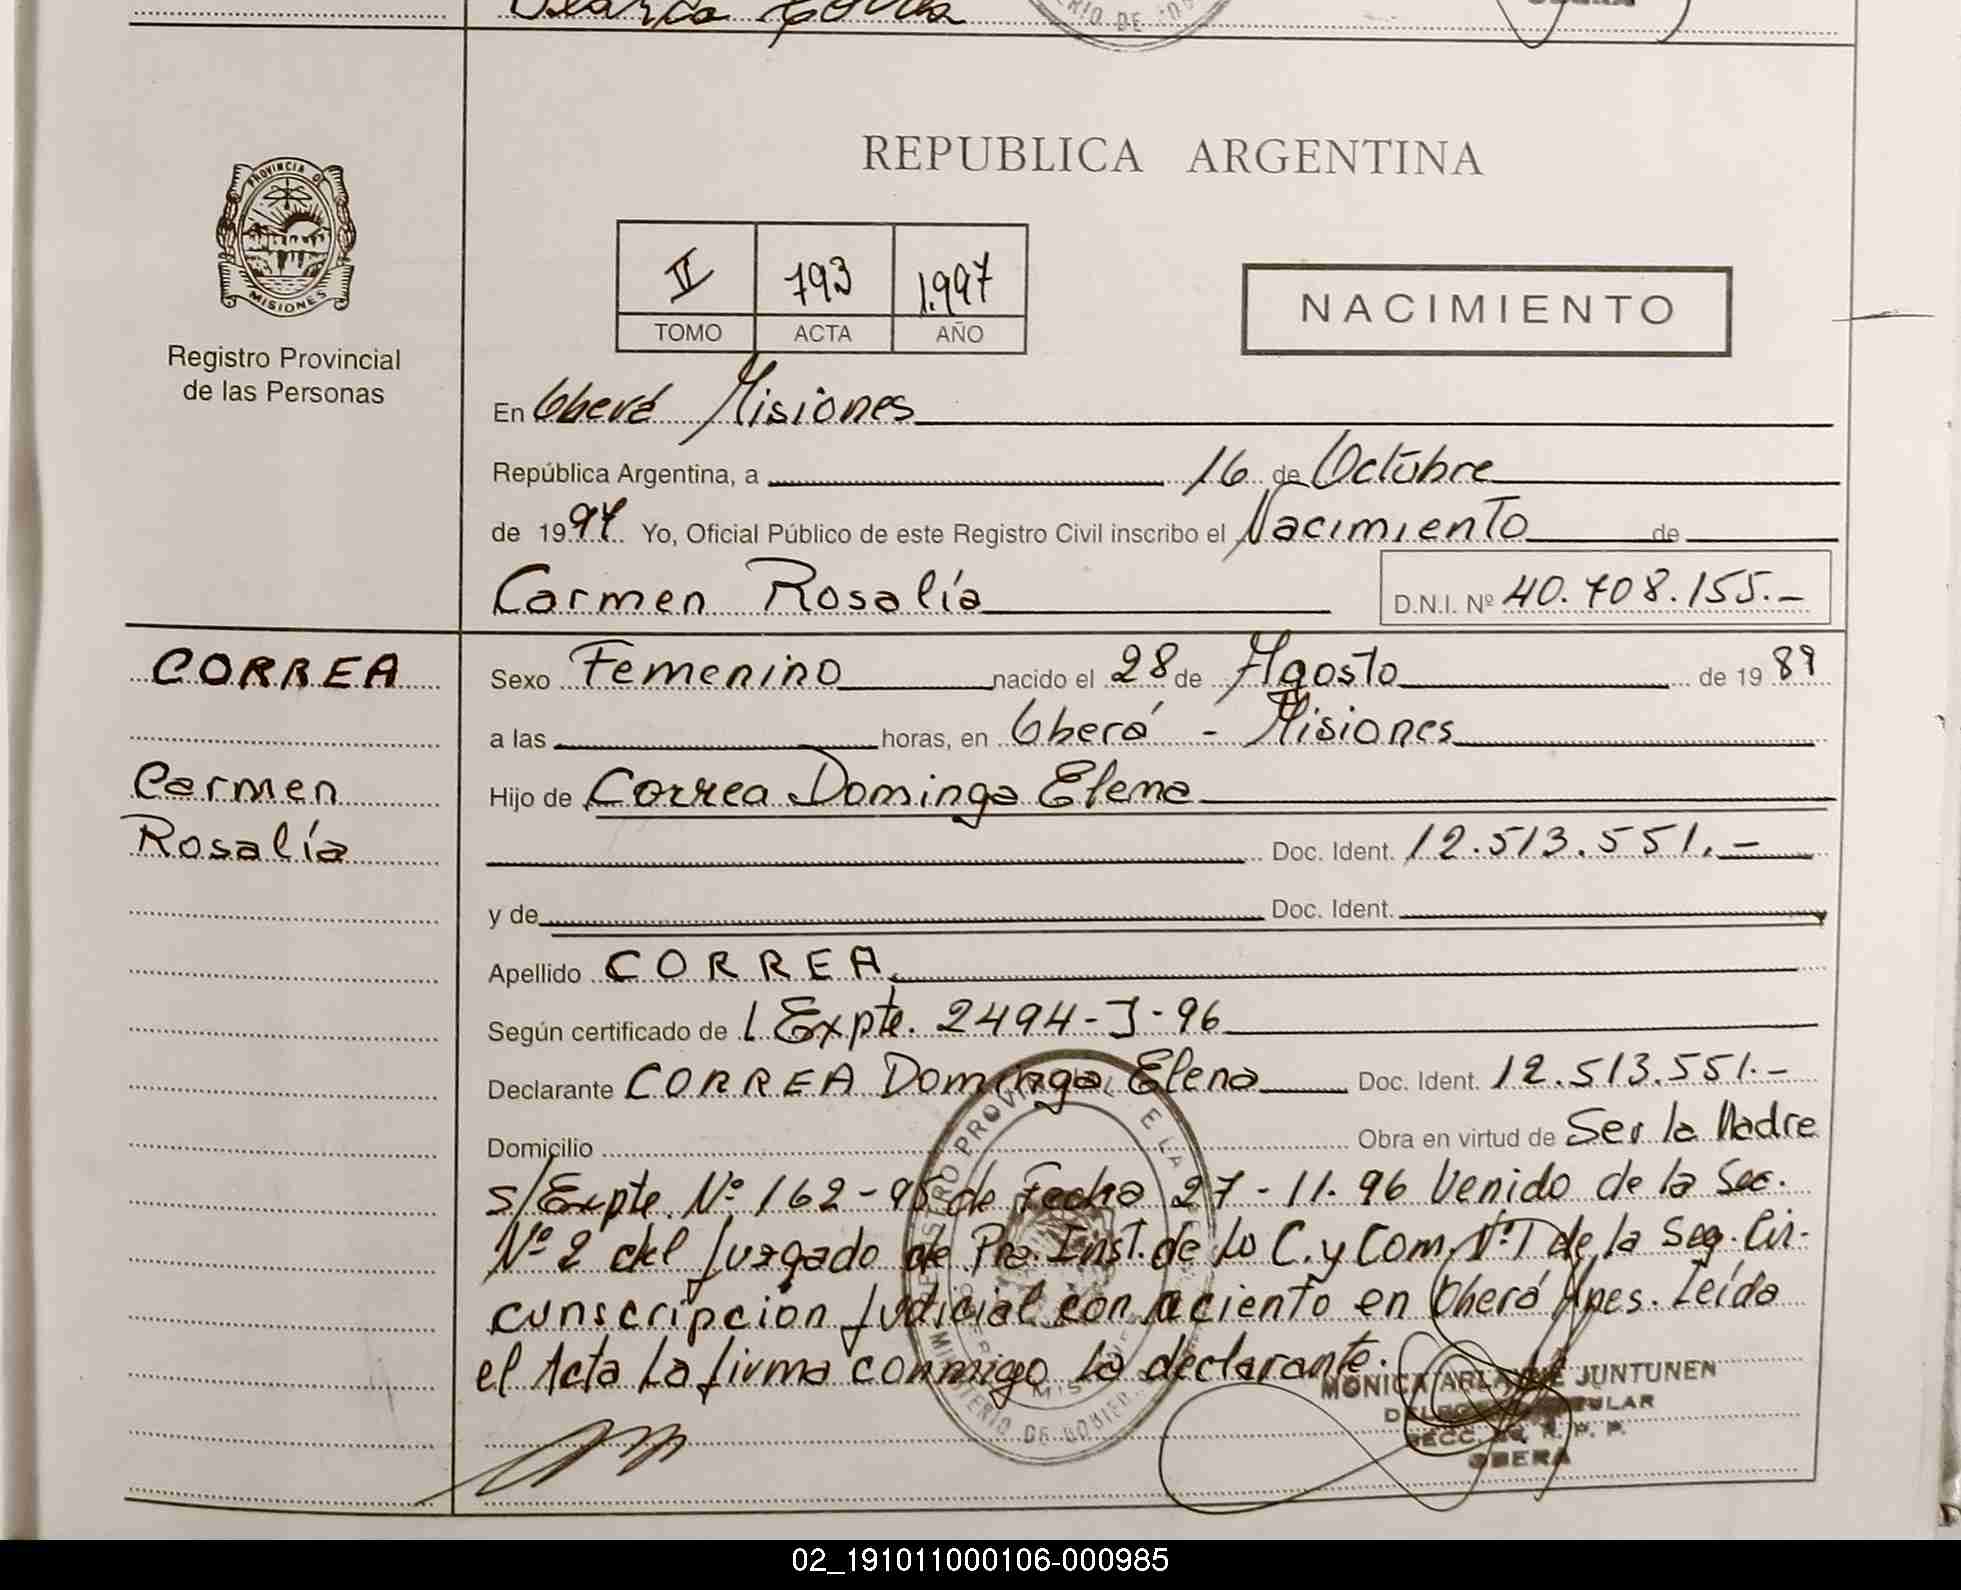 PROVINCIA DE
MISIONES
Registro Provincial
de las Personas
REPUBLICA ARGENTINA
II 793 1.997
TOMO ACTA AÑO
NACIMIENTO
En Oberá Misiones
República Argentina, a 16 de Octubre
de 1997 Yo, Oficial Público de este Registro Civil inscribo el Nacimiento de
Carmen Rosalía D.N.I. Nº 40.708.155.-
CORREA
Carmen
Rosalía
Sexo Femenino nacido el 28 de Agosto de 1989
a las horas, en Oberá - Misiones
Hijo de Correa Dominga Elena
Doc. Ident. 12.513.551.-
y de Doc. Ident.
Apellido CORREA
Según certificado de Expte. 2494-J-96
Declarante CORREA Dominga Elena Doc. Ident. 12.513.551.-
Domicilio Obra en virtud de Ser la Madre
s/Expte. Nº 162-95 de Fecha 27-11.96 Venido de la Sec.
Nº 2 del Juzgado de Pra. Inst. de lo C. y Com. Nº1 de la Seg. Cir-
cunscripcion Judicial con aciento en Oberá Mnes. Leída
el Acta La firma conmigo la declarante.
JUNTUNEN
OBERA
02_191011000106-000985